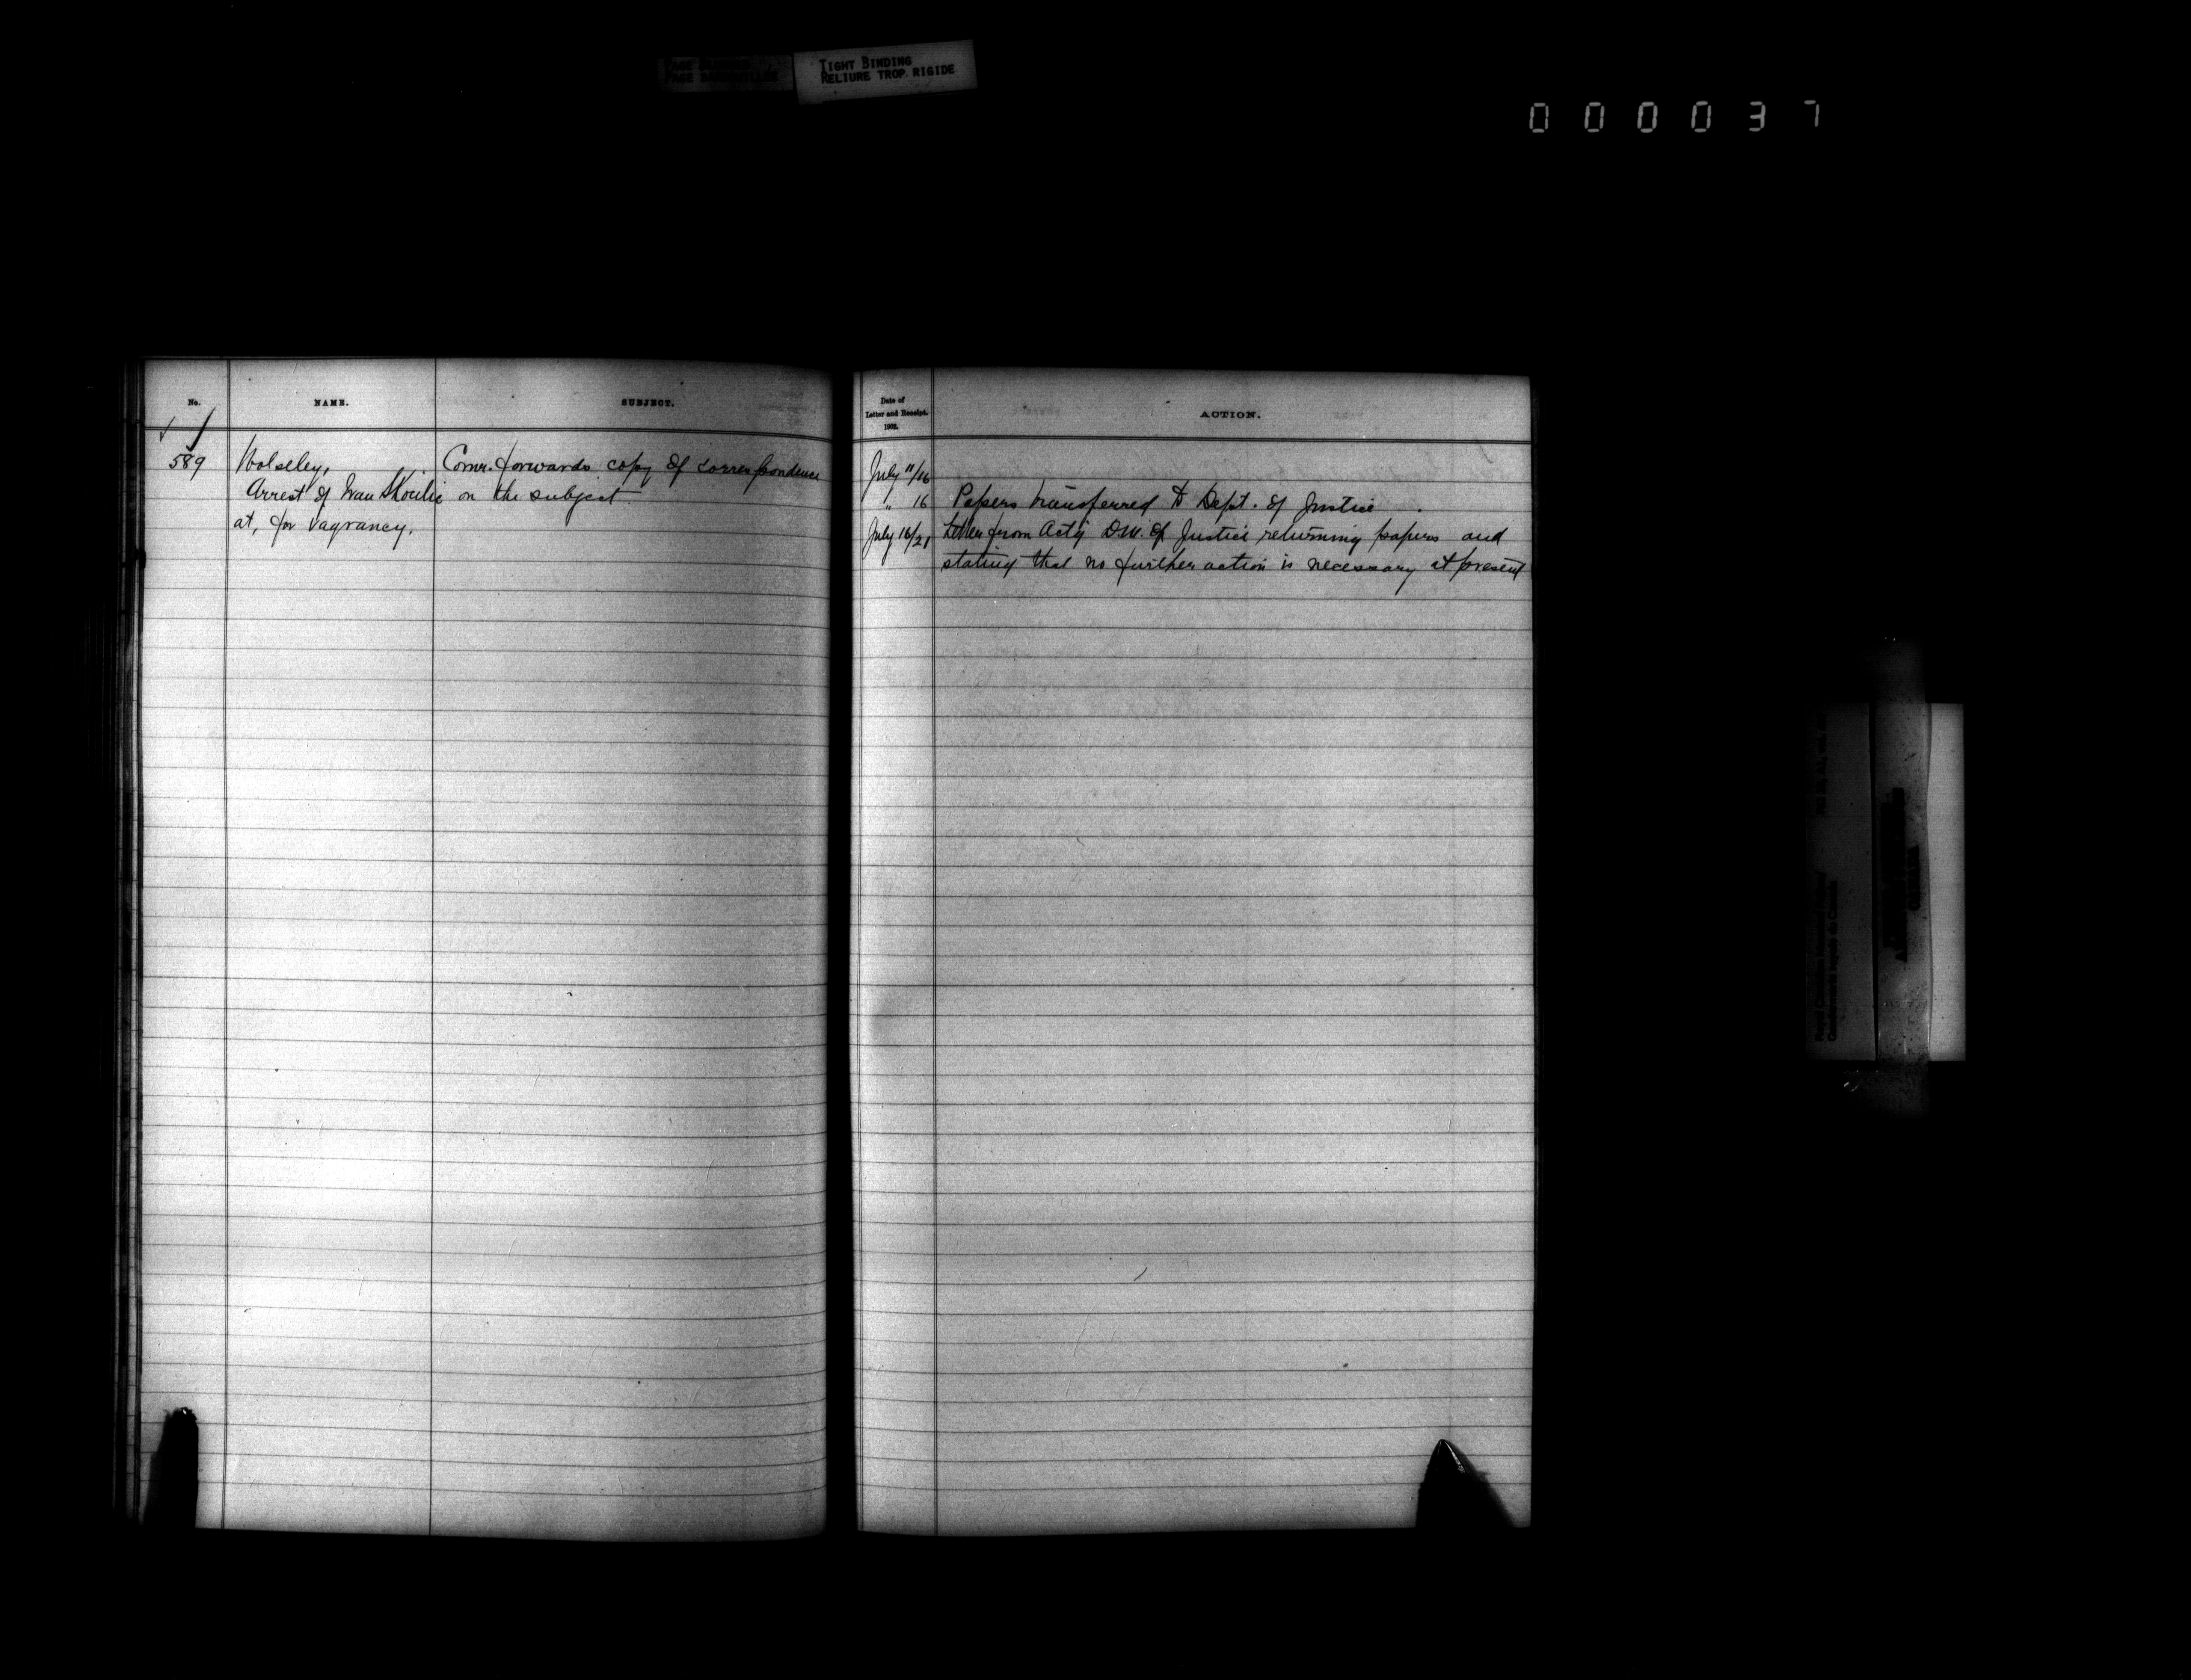 TIGHT BINDING
RELIURE TROP RIGIDE
000037
No.
NAME.
SUBJECT.
589
Wolseley,
Arrest of Ivan
at, for Vagrancy.
Comr. forwards copy of correspondence
on the subject
Date of
Letter and Receipt.
1902.
ACTION.
July 11/16
" 16 Papers transferred to Dept. of Justice.
July 16/21 Letter from Actg D.M. of Justice returning papers and
stating that no further action is necessary at present